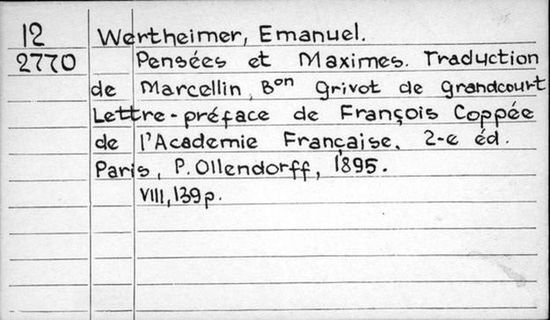 12 Wertheimer, Emanuel.
2770 Pensées et Maximes. Traduction
de Marcellin, Bon Grivot de Grandcourt
Lettre-préface de François Coppée
de l'Academie Française, 2-e éd.
Paris, P. Ollendorff, 1895.
VIII, 139 p.